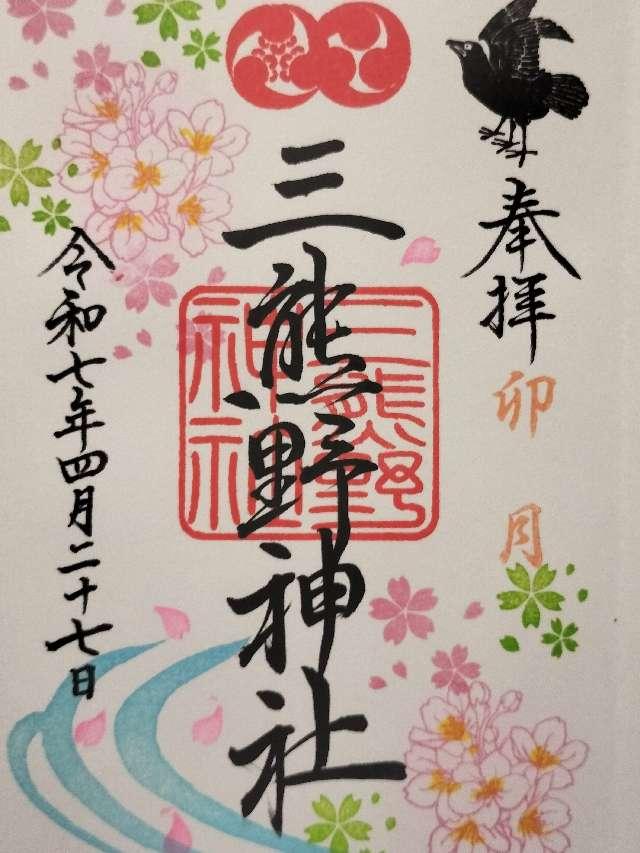 奉拝
卯月
三熊野神社
三熊野
神社
令和七年四月二十七日